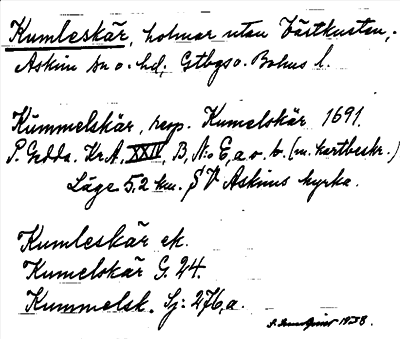 Kumleskär, holmar utan Västkusten,
Askim sn o. hd, Gtbgs o. Bohus l.
Kummelskär, resp. Kumelskär 1691.
P. Gedda. Kr.A, XXIV, B, N:o E, a o. b. (m. kartbeskr.)
Läge 5,2 km. SV Askims kyrka.
Kumleskär ek.
Kumelskär G. 24.
Kummelsk. Sj: 276,a.
1938.